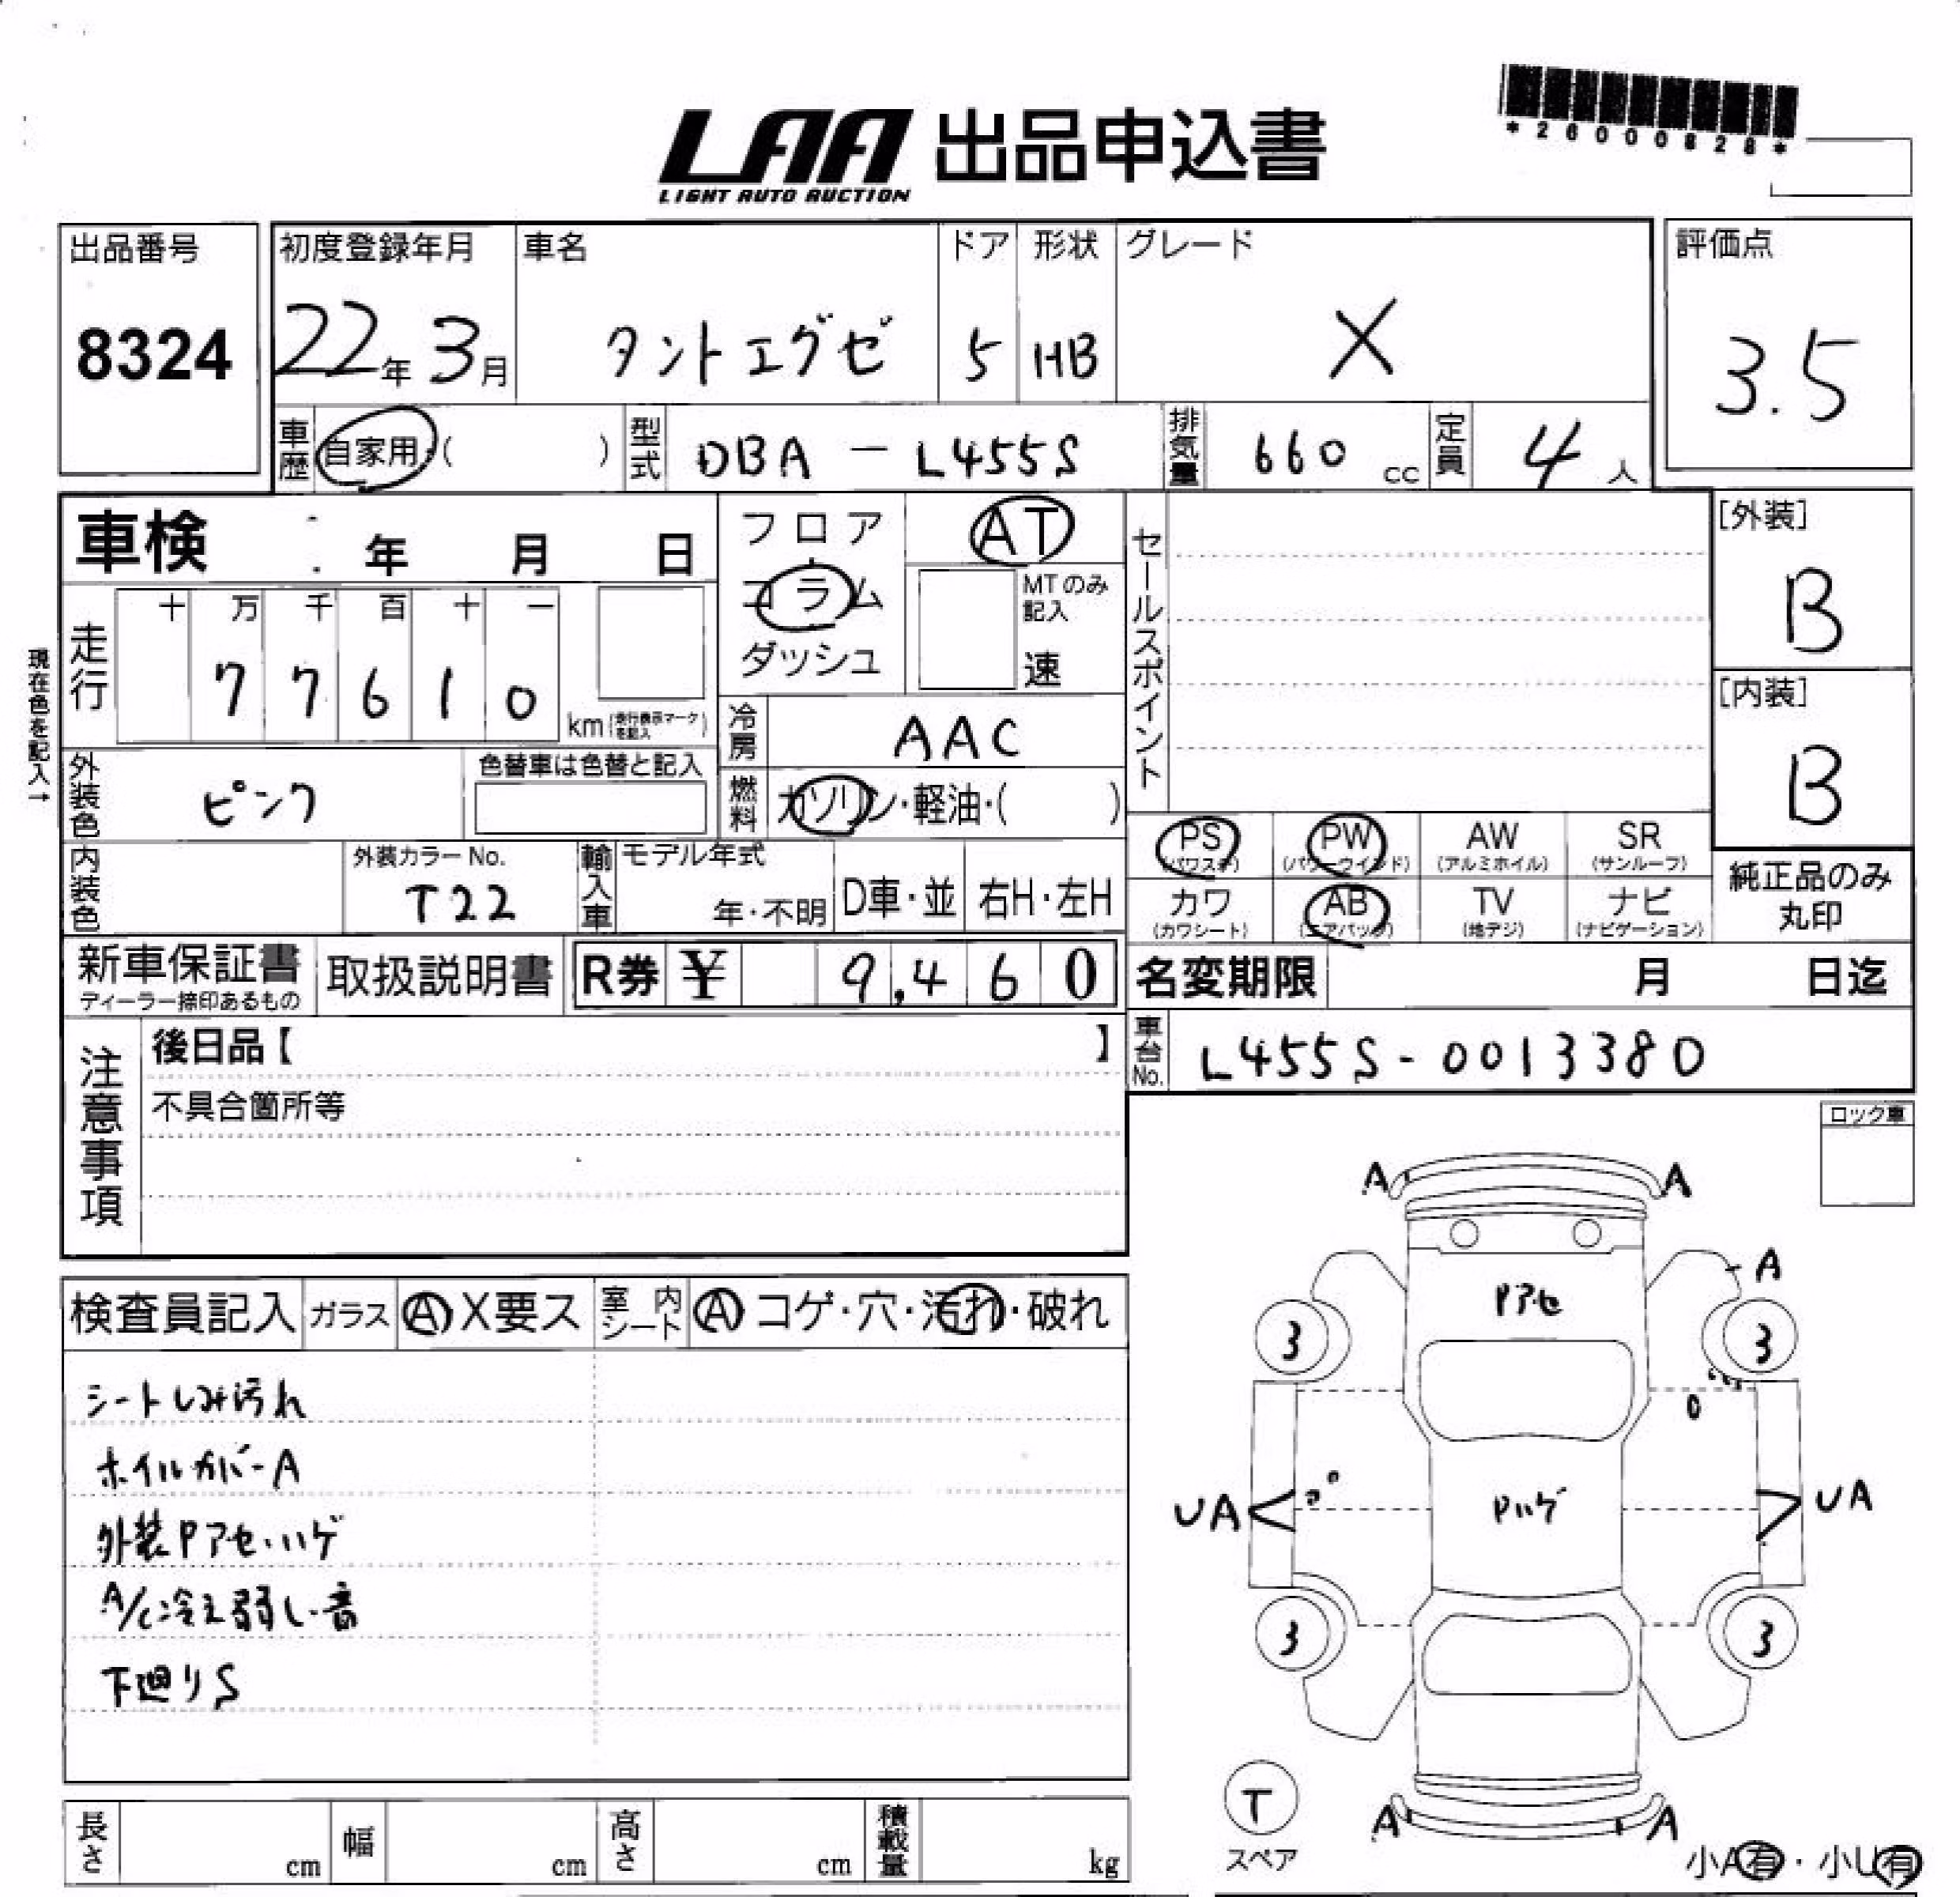 *26000828*
LAA 出品申込書
LIGHT AUTO AUCTION
出品番号
8324
初度登録年月
22年3月
車名
タントエグゼ
ドア
5
形状
HB
グレード
X
評価点
3.5
車歴 自家用・( )
型式 DBA - L455S
排気量 660 cc
定員 4人
車検 年 月 日
フロア
コラム
ダッシュ
AT
MTのみ
記入
速
セールスポイント
[外装]
B
[内装]
B
現在色を記入→
走行
十 万 千 百 十 一
7 7 6 1 0
km(走行表示マークを記入)
冷房 AAC
燃料 ガソリン・軽油・( )
外装色 ピンク
色替車は色替と記入
内装色
外装カラーNo.
T22
輸入車
モデル年式
年・不明
D車・並
右H・左H
PS
(パワステ)
PW
(パワーウインド)
AW
(アルミホイル)
SR
(サンルーフ)
カワ
(カワシート)
AB
(エアバッグ)
TV
(地デジ)
ナビ
(ナビゲーション)
純正品のみ
丸印
新車保証書
ディーラー捺印あるもの
取扱説明書
R券 ¥ 9,460
名変期限 月 日迄
車台No. L455S-0013380
注意事項
後日品【 】
不具合箇所等
ロック車
検査員記入 ガラス A X要ス 室内シート A コゲ・穴・汚れ・破れ
シートしみ汚れ
ホイルカバーA
外装Pアセ・ハゲ
A/C冷え弱し・音
下廻りS
A A
A
Pアセ
3 3
UA Pハゲ UA
3 3
A A
T
スペア
小A有・小U有
長さ cm
幅 cm
高さ cm
積載量 kg